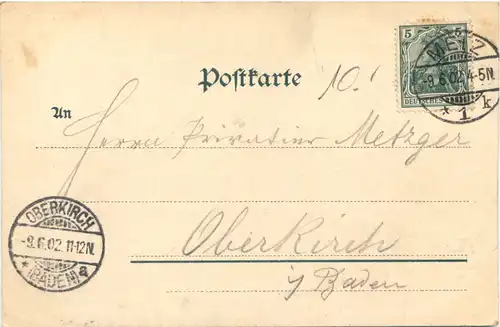 5 5
DEUTSCHES
METZ
-9.6.02.4-5N.
* 1 k
Postkarte
10.
An
Herrn Privatier Metzger
OBERKIRCH
-9.6.02.11-12N.
* (BADEN) a
Oberkirch
i/ Baden